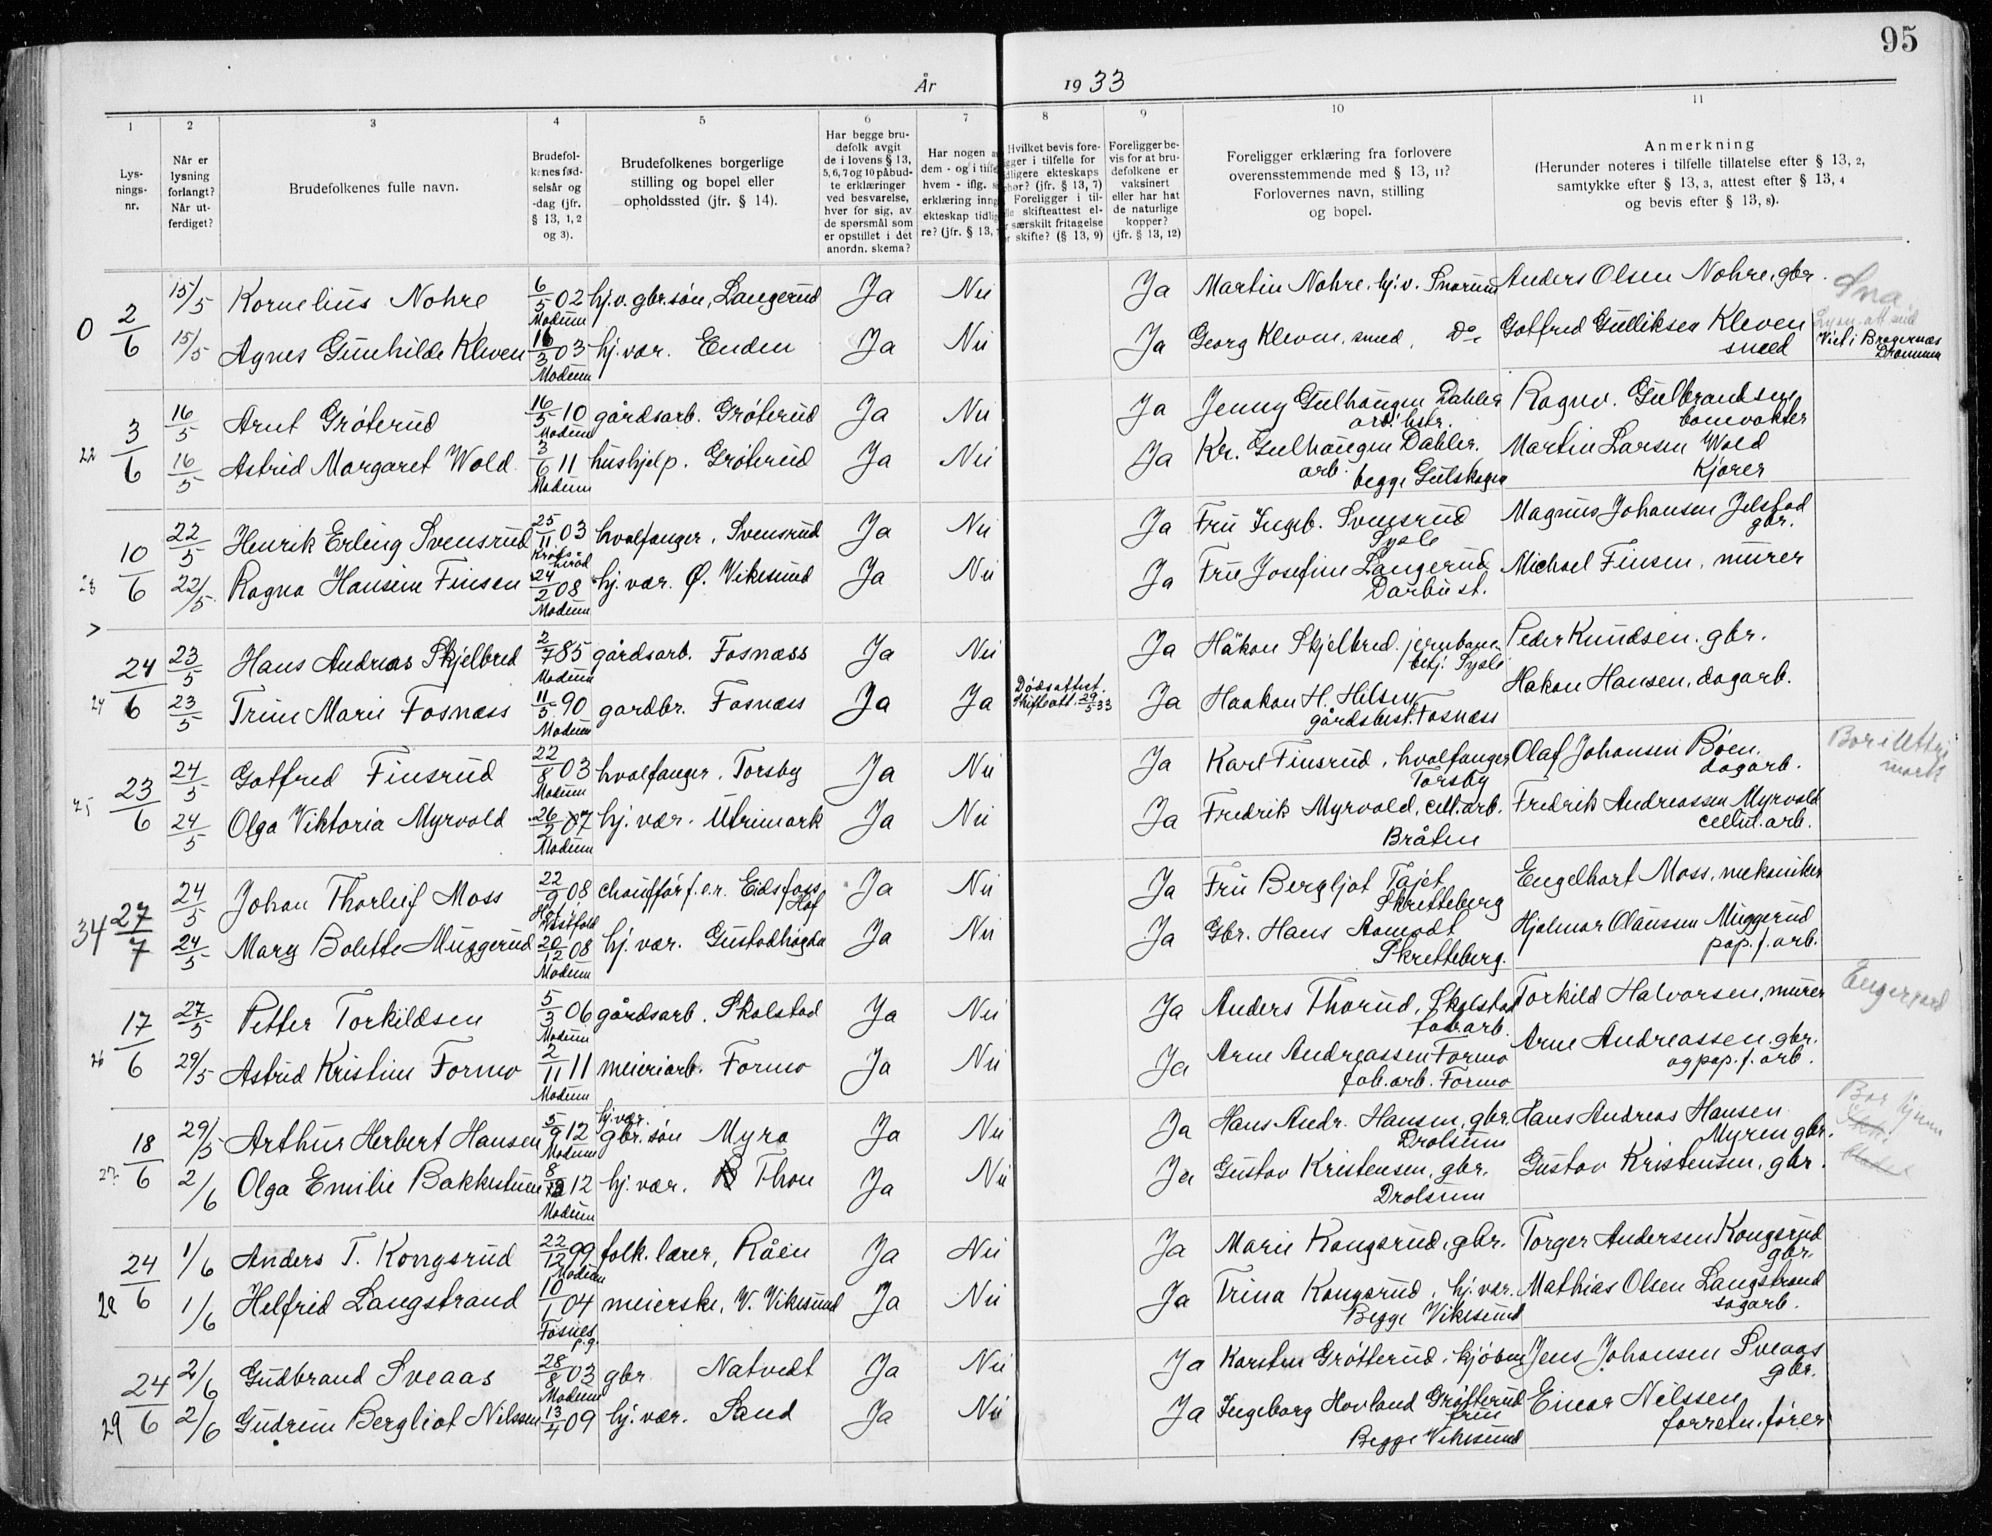 95
År 1933
1 2 3 4 5 6 7 8 9 10 11
Lys-
nings-
nr.
Når er
lysning
forlangt?
Når ut-
ferdiget?
Brudefolkenes fulle navn.
Brudefol-
kenes fød-
selsår og
-dag (jfr.
§ 13, 1, 2
og 3).
Brudefolkenes borgerlige
stilling og bopel eller
opholdssted (jfr. § 14).
Har begge bru-
defolk avgit
de i lovens § 13,
5, 6, 7 og 10 påbud-
te erklæringer
ved besvarelse,
hver for sig, av
de spørsmål som
er opstillet i det
anordn. skema?
Har nogen a
dem - og i tilfe
hvem - iflg. s
erklæring inng
ekteskap tidlig
re? (jfr. § 13,
Hvilket bevis fore-
gger i tilfelle for
dligere ekteskaps
phør? (jfr. § 13, 7)
Foreligger i til-
lle skifteattest el-
r særskilt fritagelse
r skifte? (§ 13, 9)
Foreligger be-
vis for at bru-
defolkene er
vaksinert
eller har hat
de naturlige
kopper?
(jfr. § 13, 12)
Foreligger erklæring fra forlovere
overensstemmende med § 13, 11?
Forlovernes navn, stilling
og bopel.
Anmerkning
(Herunder noteres i tilfelle tillatelse efter § 13, 2,
samtykke efter § 13, 3, attest efter § 13, 4
og bevis efter § 13, 8).
0 2/6 15/5 Kornelius Nohre 6/5 02 Modum hj.v. gbr.søn, Langerud Ja Nei Ja Martin Nohre, hj.v. Snarum Anders Olsen Nohre, gbr. Sna.
15/5 Agnes Gunhilde Kleven 16/3 03 Modum hj. vær. Enden Ja Nei Ja Georg Kleven, smed, Do Gotfred Gulliksen Kleven smed Viet i Bragernes Drammen
22 3/6 16/5 Arnt Grøterud 16/5 10 Modum gårdsarb. Grøterud Ja Nei Ja Jenny Gulhaugen Dahler arb. hstr. Ragnv. Gulbrandsen banevokter
16/5 Astrid Margaret Wold 3/6 11 Modum hushjelp. Grøterud Ja Nei Ja Kr. Gulhaugen Dahler. arb. begge Gulskogen Martin Larsen Wold kjører
23 10/6 22/5 Henrik Erling Svensrud 25/11 03 Krødsherad hvalfanger, Svensrud Ja Nei Ja Fru Ingeb. Svensrud Sysle Magnus Johansen Jelstad gbr.
22/5 Ragna Hansine Finsen 24/2 08 Modum hj. vær. Ø. Vikesund Ja Nei Ja Fru Josefine Langerud Darbu st. Michael Finsen, murer
>
24 24/6 23/5 Hans Andreas Skjelbred 2/7 85 Modum gårdsarb. Fosnæss Ja Nei Ja Håkon Skjelbred. jernbane betj. Sysle Peder Knudsen, gbr.
23/5 Trine Marie Fosnæss 11/5 90 Modum gardbr. Fosnæss Ja Ja Dødsattest. Skifteatt. 29/5 33 Ja Haakon H. Hilsen, gårdsbest. Fosnæss Hakon Hansen, dagarb.
25 23/6 24/5 Gotfred Finsrud 22/8 03 Modum hvalfanger, Torsby Ja Nei Ja Karl Finsrud, hvalfanger Torsby Olaf Johansen Bøen. dagarb. Bor i Uttrimark
24/5 Olga Viktoria Myrvold 26/2 07 Modum hj. vær. Utrimark Ja Nei Ja Fredrik Myrvold, cell.arb. Bråten Fredrik Andreassen Myrvold cellul.arb.
34 27/7 24/5 Johan Thorleif Moss 22/9 08 Hof, Vestfold chauffør f.e.r. Eidsfoss Hof Ja Nei Ja Fru Bergljot Tajet Skretteberg Engelhart Moss, mekaniker
24/5 Mary Bolette Muggerud 20/12 08 Modum hj. vær. Gustadhøgda Ja Nei Ja Gbr. Hans Aamodt Skretteberg. Hjalmar Olaussen Muggerud pap. f. arb.
26 17/6 27/5 Petter Torkildsen 5/3 06 Modum gårdsarb. Skalstad Ja Nei Ja Anders Thorud, Skalstad fab.arb. Torkild Halvorsen, murer
29/5 Astrid Kristine Formo 2/11 11 Modum meieriarb. Formo Ja Nei Ja Arne Andreassen Formo fab.arb. Formo Arne Andreassen, gbr. og pap. f. arb.
27 18/6 29/5 Arthur Herbert Hansen 5/9 12 Modum hj.vær. gbr. søn Myra Ja Nei Ja Hans Andr. Hansen, gbr. Drolsum Hans Andreas Hansen Myren gbr. Bor
2/6 Olga Emilie Bakkestuen 8/12 12 Modum hj. vær. Thon Ja Nei Ja Gustav Kristensen, gbr. Drolsum Gustav Kristensen, gbr.
28 24/6 1/6 Anders T. Kongsrud 22/12 99 Modum folk. lærer, Råen Ja Nei Ja Marie Kongsrud, gbr. Torger Andersen Kongsrud gbr.
1/6 Helfrid Langstrand 10/1 04 Fosnes p.g. meierske, V. Vikesund Ja Nei Ja Trina Kongsrud, hj. vær. Begge Vikesund Mathias Olsen Langstrand sagarb.
29 24/6 2/6 Gudbrand Sveaas 28/8 03 Modum gbr Natvedt Ja Nei Ja Karsten Grøtterud, kjøbm Jens Johansen Sveaas gbr.
2/6 Gudrun Bergliot Nilssen 13/4 09 hj. vær. Sand Ja Nei Ja Ingeborg Hovland Grøtterud frue Begge Vikesund Einar Nilssen, forretn. fører